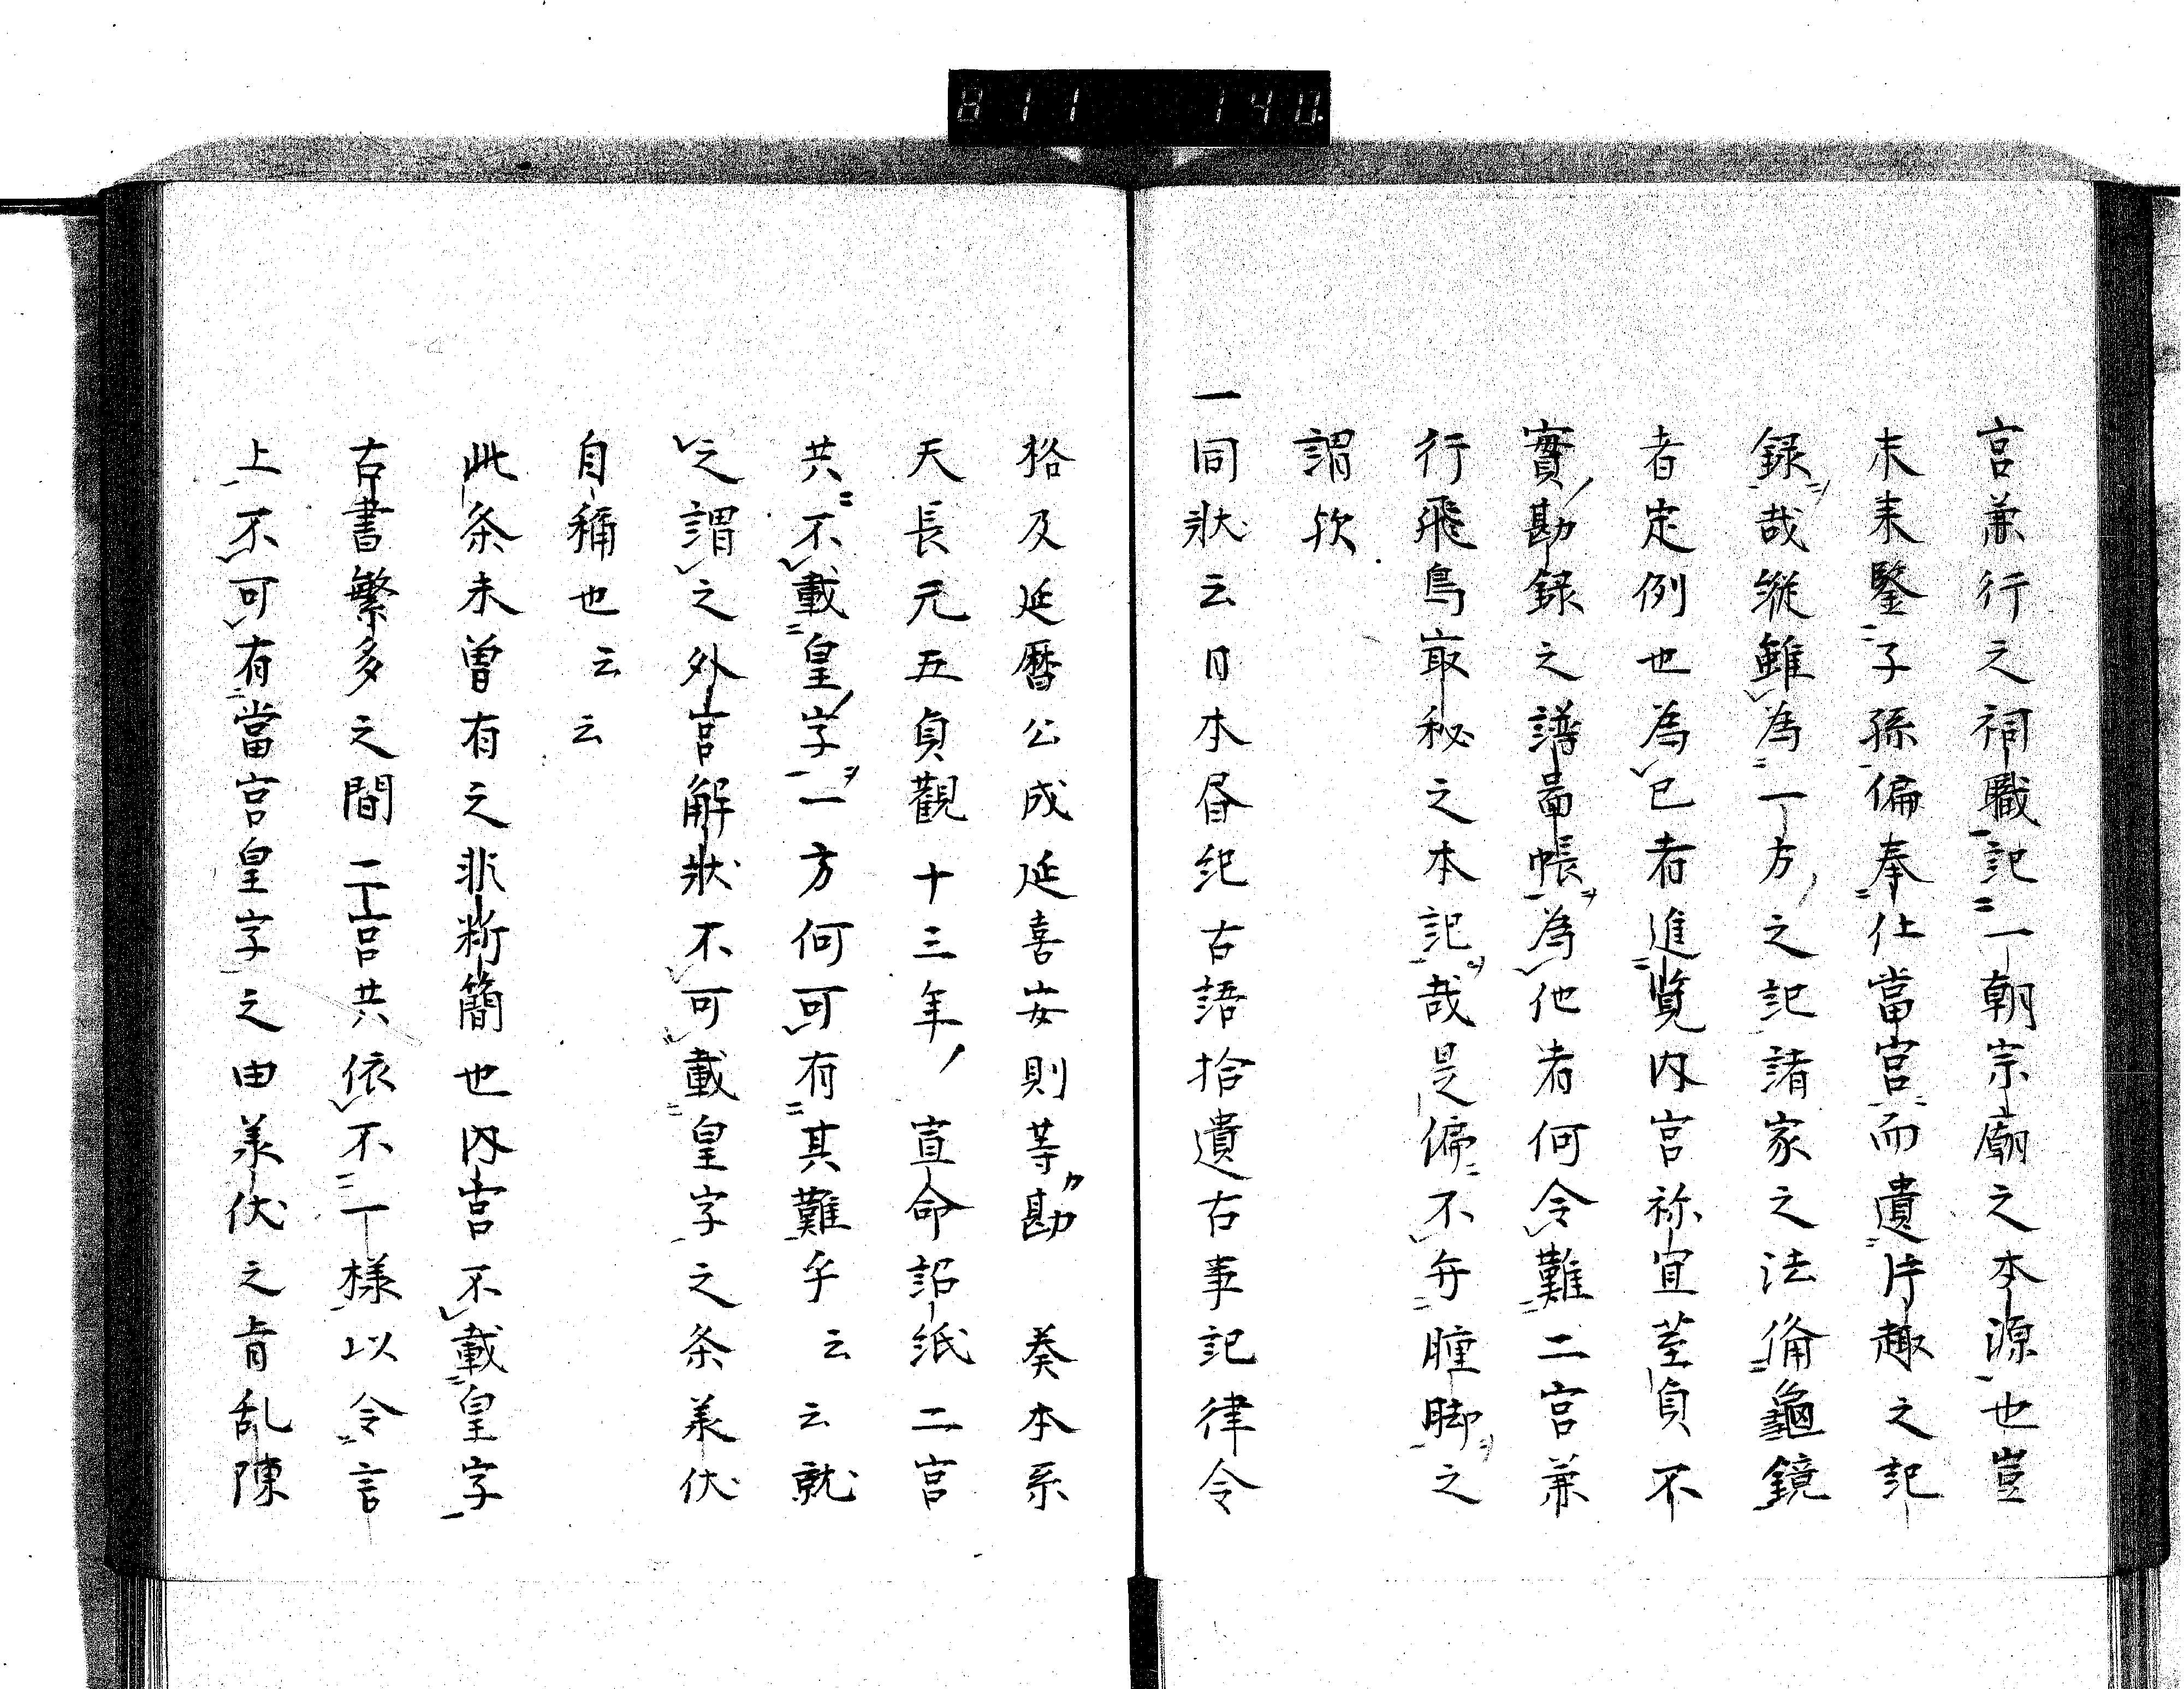 811 140.
宮兼行之祠職記一朝宗廟之本源也豈
末来鑒子孫偏奉仕當宮而遺片趣之記
録哉縦雖為一方之記諸家之法備龜鏡
者定例也為已者進覧内宮祢宜荎負不
實勘録之譜啚帳為他者何令難二宮兼
行飛鳥最秘之本記哉是偏不弁瞳脚之
謂欤
一同状云日本昼紀古語拾遺古事記律令
格及延暦公成延喜安則等勘 奏本系
天長元五貞觀十三年 宣命詔紙二宮
共不載皇字一方何可有其難乎云云就
之謂之外宮解状不可載皇字之条義伏
自稱也云云
此条未曽有之非断簡也内宮不載皇字
古書繁多之間二宮共依不一様以令言
上不可有當宮皇字之由義伏之肯乱陳